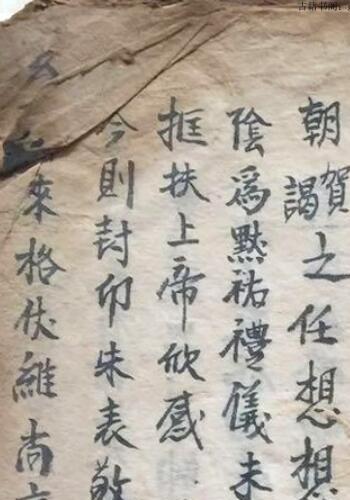 朝賀謁之任想想
陰為默祐禮儀未
抂扶上帝欣感
今則封印朱表敬
來格伏維尚